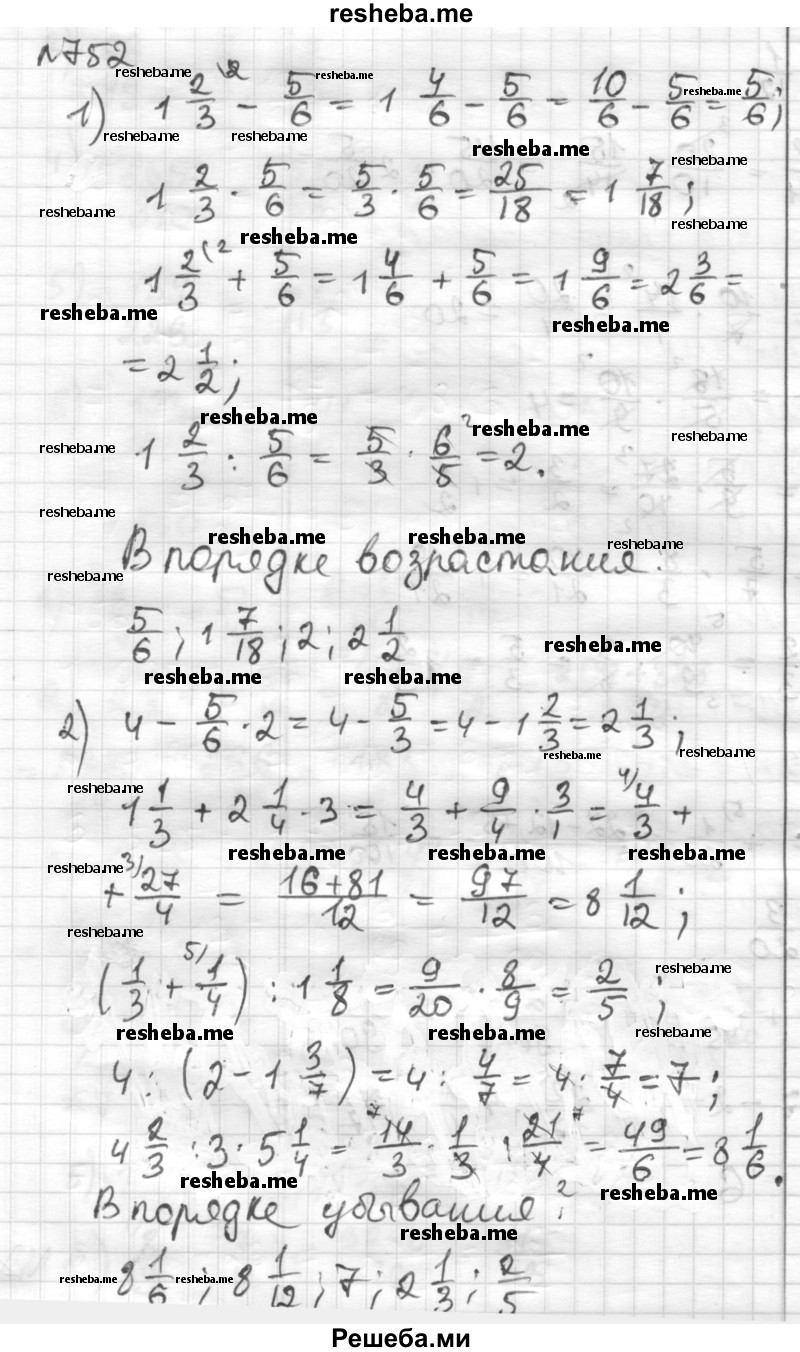 resheba.me
№752
1) 1 2/3 \2 - 5/6 = 1 4/6 - 5/6 = 10/6 - 5/6 = 5/6;
1 2/3 · 5/6 = 5/3 · 5/6 = 25/18 = 1 7/18;
1 2/3 (2 + 5/6 = 1 4/6 + 5/6 = 1 9/6 = 2 3/6 =
= 2 1/2;
1 2/3 : 5/6 = 5/3 · 6/5 2 = 2.
В порядке возрастания:
5/6; 1 7/18; 2; 2 1/2
2) 4 - 5/6 · 2 = 4 - 5/3 = 4 - 1 2/3 = 2 1/3;
1 1/3 + 2 1/4 · 3 = 4/3 + 9/4 · 3/1 = 4/ 4/3 +
+ 3/ 27/4 = 16+81/12 = 97/12 = 8 1/12;
(1/3 + 5/ 1/4) : 1 1/8 = 9/20 · 8/9 = 2/5;
4 : (2 - 1 3/7) = 4 : 4/7 = 4 · 7/4 = 7;
4 2/3 : 3 · 5 1/4 = 7 14/3 · 1/3 · 21/4 7 2 = 49/6 = 8 1/6.
В порядке убывания:
8 1/6; 8 1/12; 7; 2 1/3; 2/5
Решеба.ми